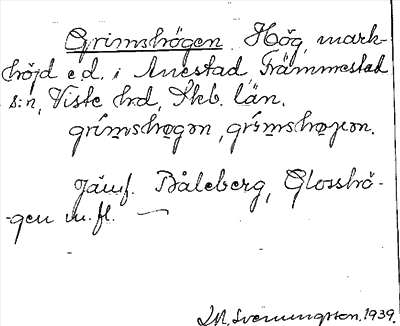 Grimshögen. Hög, mark-
höjd e.d. i Anestad, Främmestad
s:n, Viste hd, Skb. län.
grímshøgən, grímshøɡən.
Jämf. Båleberg, Glosshö-
-gen m.fl. —
Svenungsson. 1939.